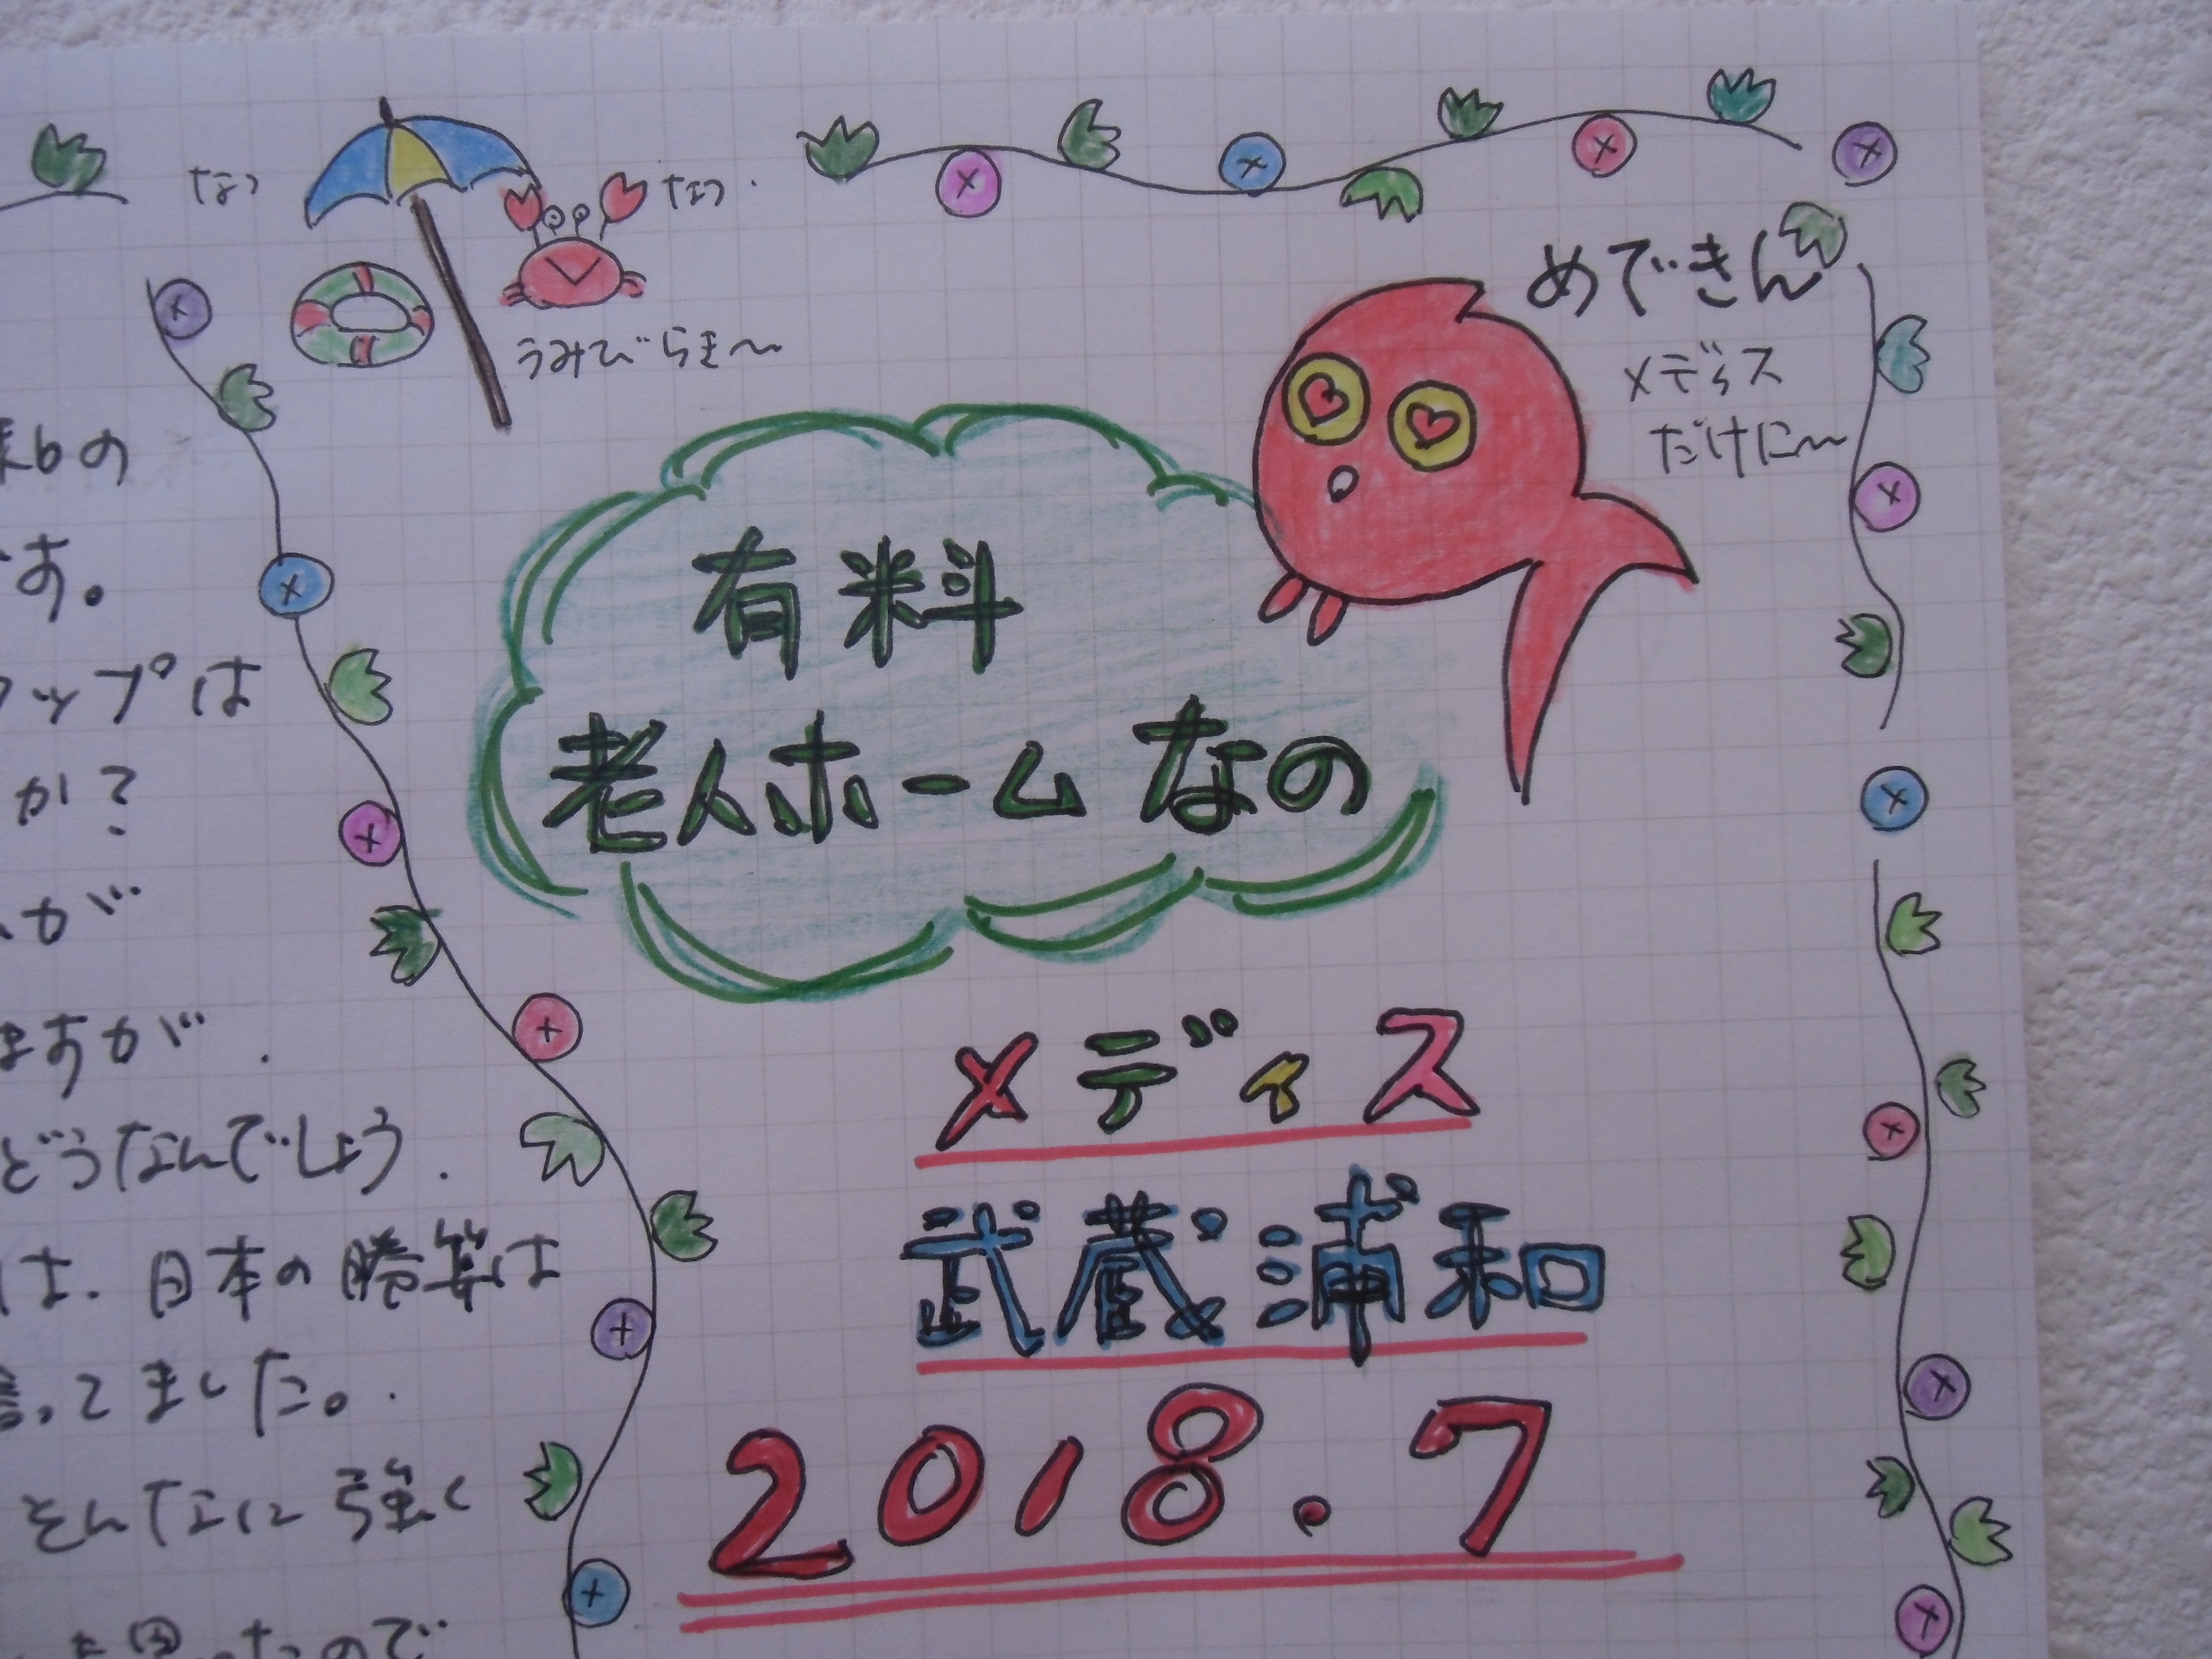 なつ
なつ
うみびらき〜
めできん
メディス
だけに〜
有料
老人ホームなの
メディス
武蔵浦和
2018.7
様の
す。
ップは
か?
が
ますが.
どうなんでしょう.
は、日本の勝算は
言ってました。
そんなに強く
思ったので